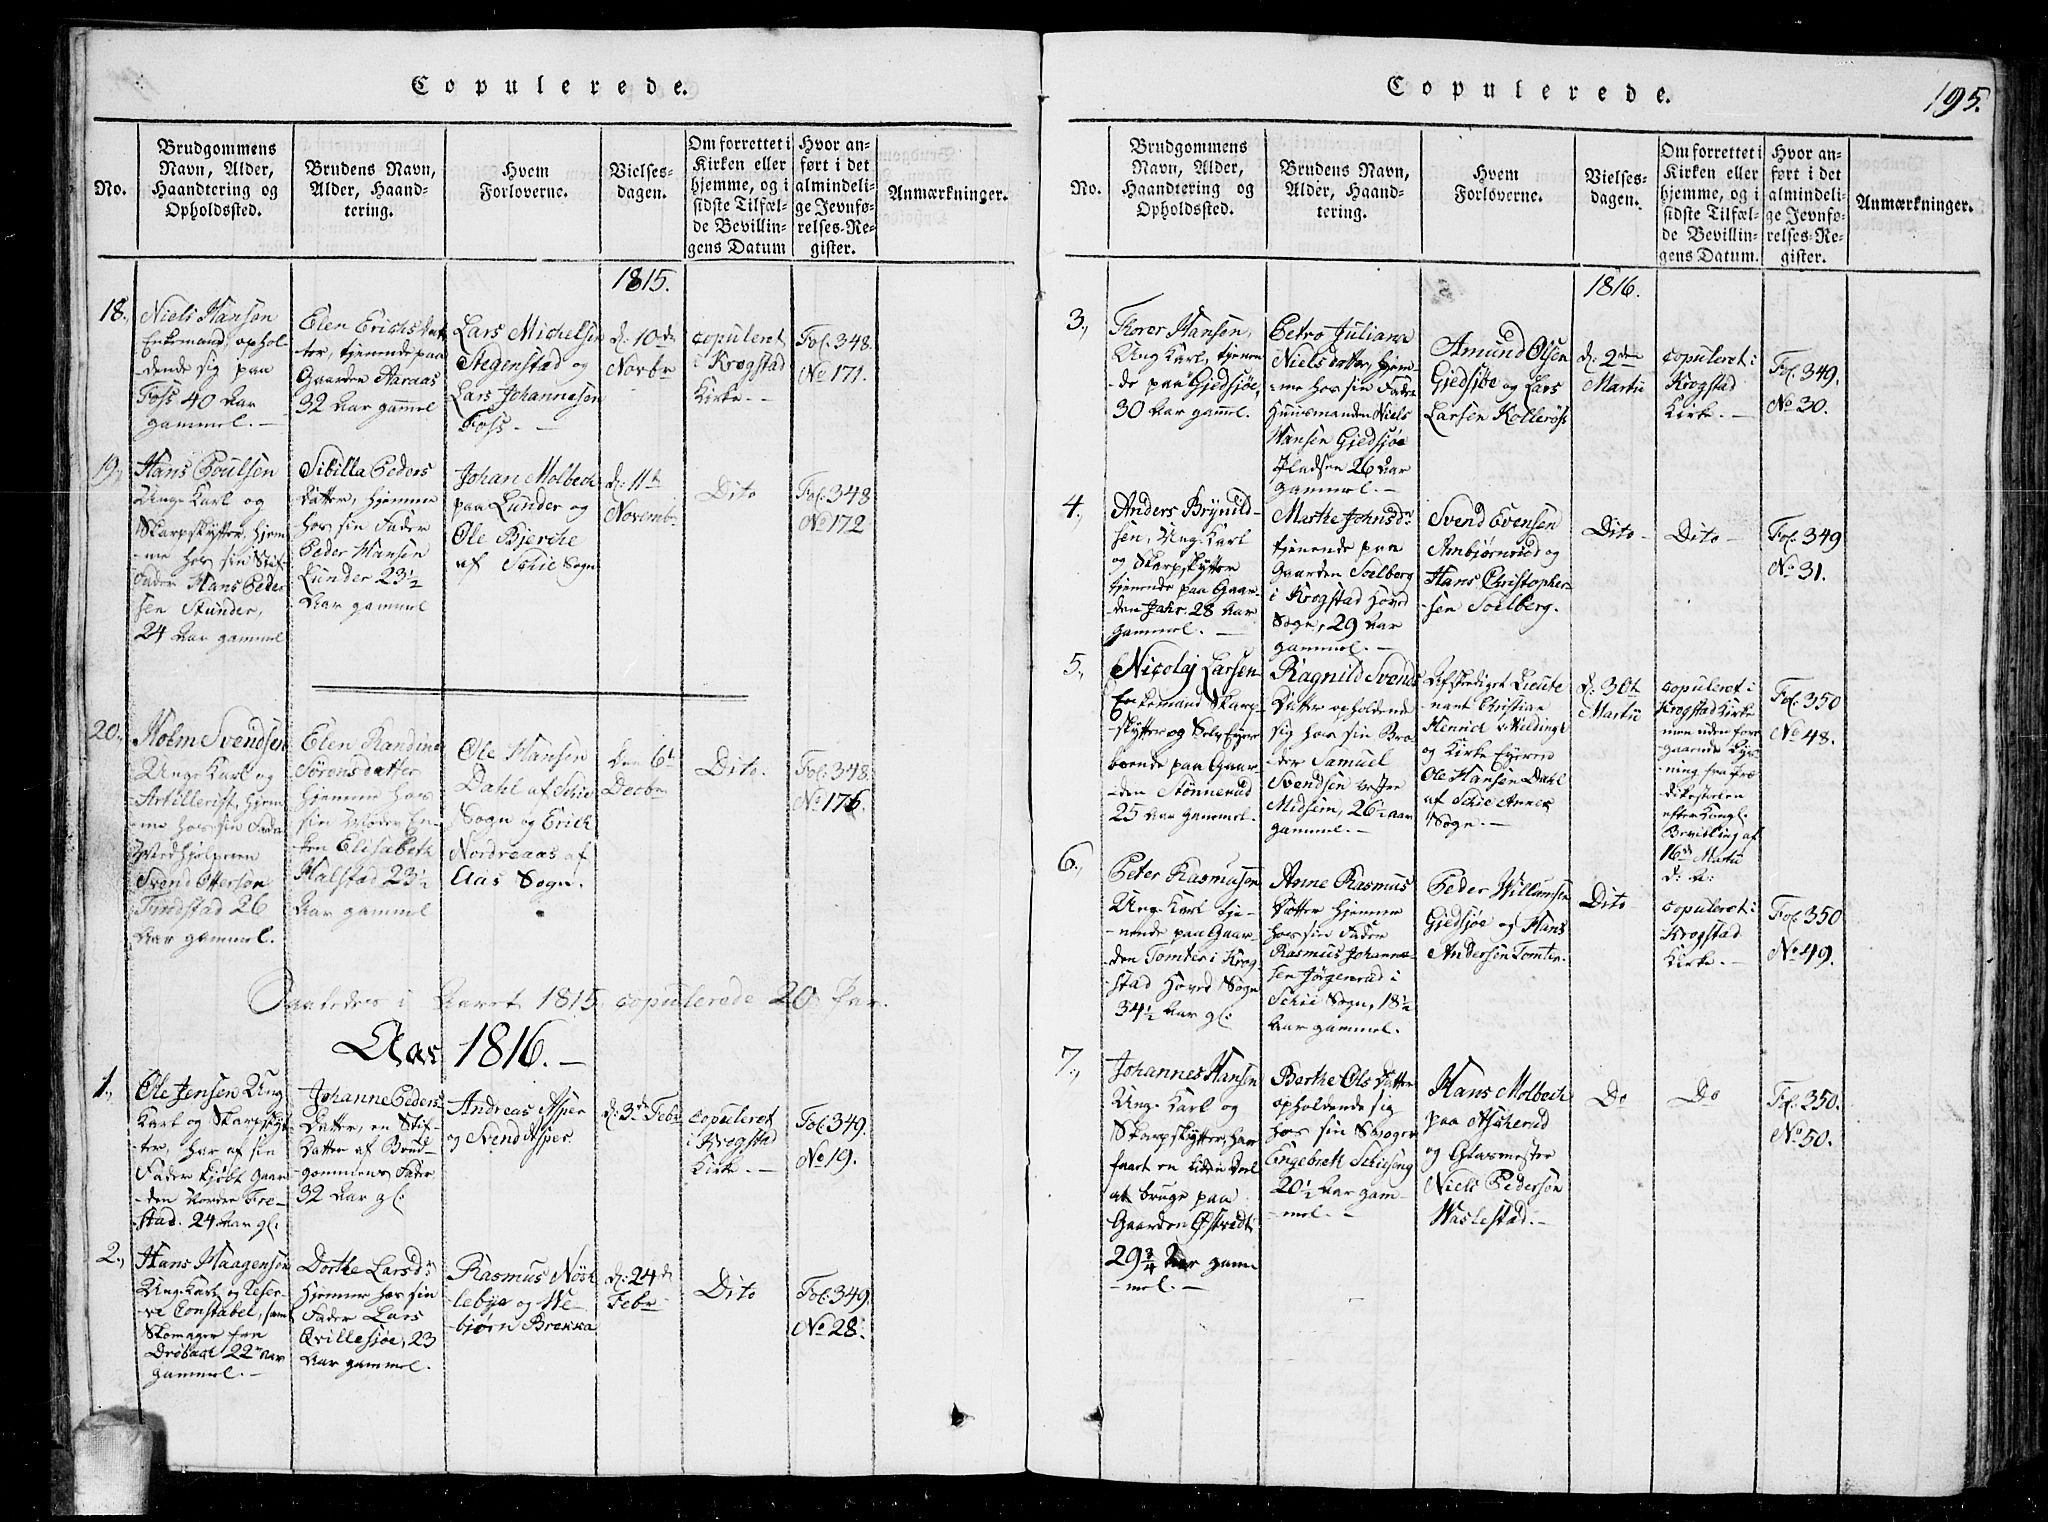 Copulerede.
No.
Brudgommens
Navn, Alder,
Haandtering og
Opholdssted.
Brudens Navn,
Alder, Haand-
tering.
Hvem
Forloverne.
Vielses-
dagen.
Om forrettet i
Kirken eller
hjemme, og i
sidste Tilfæl-
de Bevillin-
gens Datum
Hvor an-
ført i det
almindeli-
ge Jevnfø-
relses-Re-
gister.
Anmærkninger.
1815.
18.,
Niels Hansen
Enkemand, ophol-
dende sig paa
Foss 40 Aar
gammel. -
Elen Erichsdat-
ter, tjenende paa
Gaarden Aaraas
32 Aar gammel
Lars Michelsen
Stegenstad og
Lars Johannesen
Foss. -
d: 10de
Novbr
copuleret
i Krogstad
Kirke. -
Fol: 348.
No 171.
19.,
Hans Poulsen
Unge Karl og
Skarpskytter, hjem-
me hos sin Stif-
fader Hans Peder-
sen Stunder,
24 Aar gammel
Sibilla Peders
Datter, hjemme
hos sin Fader
Peder Hansen
Lunder 23½
Aar gammel
Johan Molbech
paa Lunder og
Ole Bjerche
af Schie Sogn
d: 11te
Novemb:
Dito
Fol: 348
No 172
20.,
Holm Svendsen
Unge Karl og
Artillerist, hjem-
me hos sin Fader
Medhjelperen
Svend Ottersen
Tundstad 26
Aar gammel.
Elen Randine
Sørensdatter
hjemme hos
sin Moder En-
ken Elisabeth
Halstad 23½
Aar gammel
Ole Hansen
Dahl af Schie
Sogn og Erich
Nordreaas af
Aas Sogn.
Den 6te
Decbr
Dito.
Fol: 348
No 176.
Saaledes i Aaret 1815 copulerede 20 Par.
Aar 1816. -
1.,
Ole Jensen Ung
Karl og Skarpskyt-
ter, har af sin
Fader kjøbt Gaar-
den Nordre Fre-
stad. 24 Aar gl:
Johanne Peders-
Datter, en Stif-
datter af Brud-
gommens Fader
32 Aar gl:
Andreas Asper
og Svend Asper.
d: 3de Febr
copuleret
i Krogstad
Kirke. -
Fol: 349.
No 19.
2.,
Hans Haagensen
Ung Karl og Reser-
ve Constabel, samt
Skomager fra
Drøbak 22 Aar
gammel. -
Dorthe Larsd:
hjemme hos sin
Fader Lars
Qvillesjøe, 23
Aar gammel.
Rasmus Nøst-
lebye og We-
bjørn Brekka
d: 24de
Febr
Dito
Fol: 349.
No 28.
Copulerede.
195.
No.
Brudgommens
Navn, Alder,
Haandtering og
Opholdssted.
Brudens Navn,
Alder, Haand-
tering.
Hvem
Forloverne.
Vielses-
dagen.
Om forrettet i
Kirken eller
hjemme, og i
sidste Tilfæl-
de Bevillin-
gens Datum.
Hvor an-
ført i det
almindeli-
ge Jevnfø-
relses-Re-
gister.
Anmærkninger.
1816.
3.,
Thorer Hansen,
Ung Karl, tjenen-
de paa Gjedsjøe,
30 Aar gamel.
Petro Juliane
Nielsdatter, hjem-
me hos sin Fader
Huusmanden Niels
Hansen Gjedsjøe
Pladsen 26 Aar
gammel. -
Amund Olsen
Gjedsjøe og Lars
Larsen Kollerøs
d: 2den
Martii
copuleret i
Krogstad
Kirke. -
Fol: 349.
No 30.
4.,
Anders Brynild-
sen, Ung Karl
og Skarpskytter
tjenende paa Gaar-
den Jahr. 28 Aar
gammel. -
Marthe Johnsdr
tjenende paa
Gaarden Solberg
i Krogstad Hoved
Sogn, 29 Aar
gammel. -
Svend Evensen
Ambjørnrud og
Hans Christopher-
sen Solberg.
Dito
Dito -
Fol: 349
No 31.
5.,
Nicolaj Larsen
Enkemand Skarp-
skytter og Selv Eyer
boende paa Gaar-
den Stønnerud
25 Aar gammel.
Ragnild Svends
Datter opholdende
sig hos sin Bro-
der Samuel
Svendsen vestre
Midsem, 26½ aar
gammel. -
Afskediget Lieute-
nant Christian
Henrich Huldings
og Kirke Eyeren
Ole Hansen Dahl
af Schie Annex
Sogn. -
d: 30te
Martii
copuleret i
Krogstad Kirke
men uden fore-
gaaende Lys-
ning fra Præ-
dikestolen
efter Kongl:
Bevilling af
16de Martii
d: A:
Fol: 350
No 48.
6.,
Peter Rasmusen
Ung Karl tje-
nende paa Gaar-
den Tomter i Krog-
stad Hoved Sogn
34½ Aar gl:
Anne Rasmus
Datter hjemme
hos sin Fader
Rasmus Johanne-
sen Jørgenrud i
Schie Sogn, 18½
Aar gammel.
Peder Willumsen
Gjedsjøe og Hans
Andersen Tomter.
Dito
copuleret i
Krogstad
Kirke. -
Fol: 350
No 49.
7.,
Johannes Hansen
Unge Karl og
Skarpskytter, har
faaet en liden Deel
at bruge paa
Gaarden Østvedt
29¾ Aar gam-
mel. -
Berthe Ols Datter
opholdende sig
hos sin Svoger
Engebreth Schieseng
20½ Aar gam-
mel. -
Hans Molbech
paa Ascherud
og Glasmester
Niels Pedersen
Waslestad. -
Do
Do
Fol: 350.
No 50.